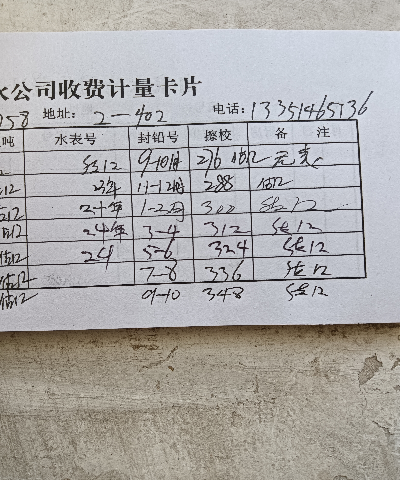 水公司收费计量卡片
258 地址: 2-402 电话: 13351465736
吨 水表号 封铅号 擦校 备 注
估12 9-10月 276 估12 无表
12 23年 11-12月 288 估12
12 24年 1-2月 300 估12
12 24年 3-4 312 估12
估12 24 5-6 324 估12
估12 7-8 336 估12
估12 9-10 348 估12